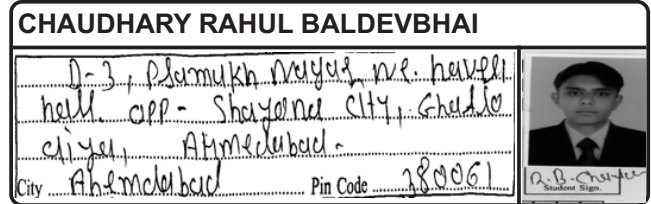 CHAUDHARY RAHUL BALDEVBHAI
D-3, Pramukh Nagar, nr. haveli
hall. OPP - Shayona City, Ghatlo
diya, Ahmedabad.
City Ahemdabad Pin Code 380061
R.B. Chaudhary
Student Sign.